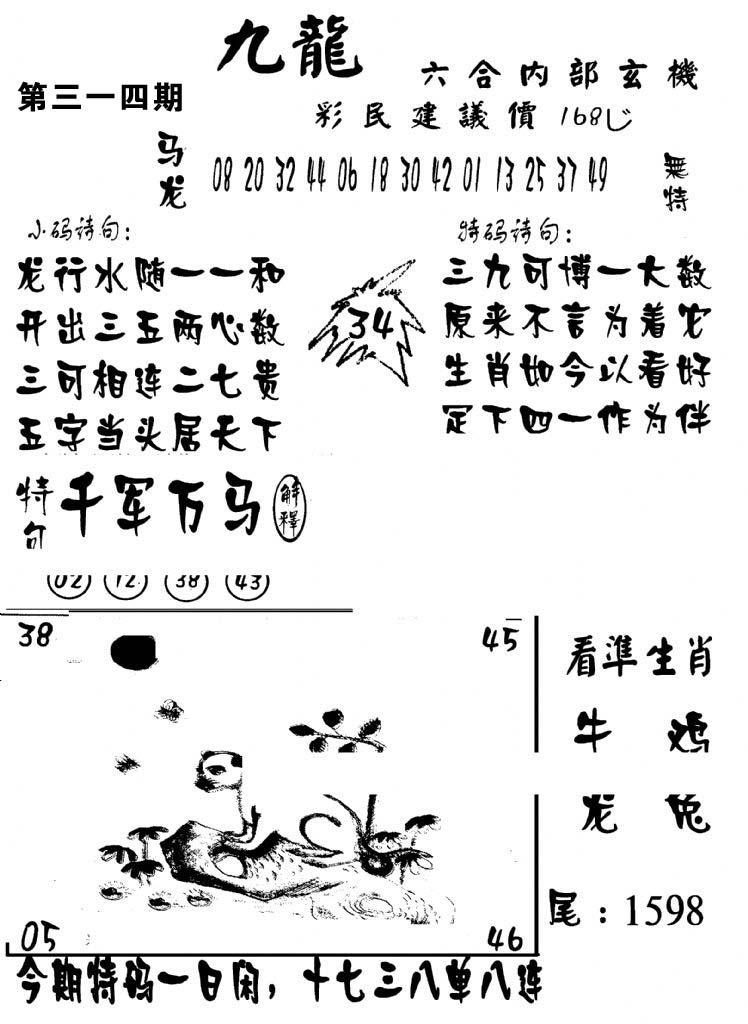 九龍
六合内部玄機
第三一四期
彩民建議價168じ
马龙
08 20 32 44 06 18 30 42 01 13 25 37 49
無特
小码诗句：
龙行水随一一和
开出三五两心数
三可相连二七贵
五字当头居天下
34
特码诗句：
三九可博一大数
原来不言为着它
生肖如今以看好
足下四一作为伴
特句
千军万马
解釋
02 12 38 43
38
45
看準生肖
牛 鸡
龙 兔
尾：1598
05
46
今期特码一日闲，十七三八单八连